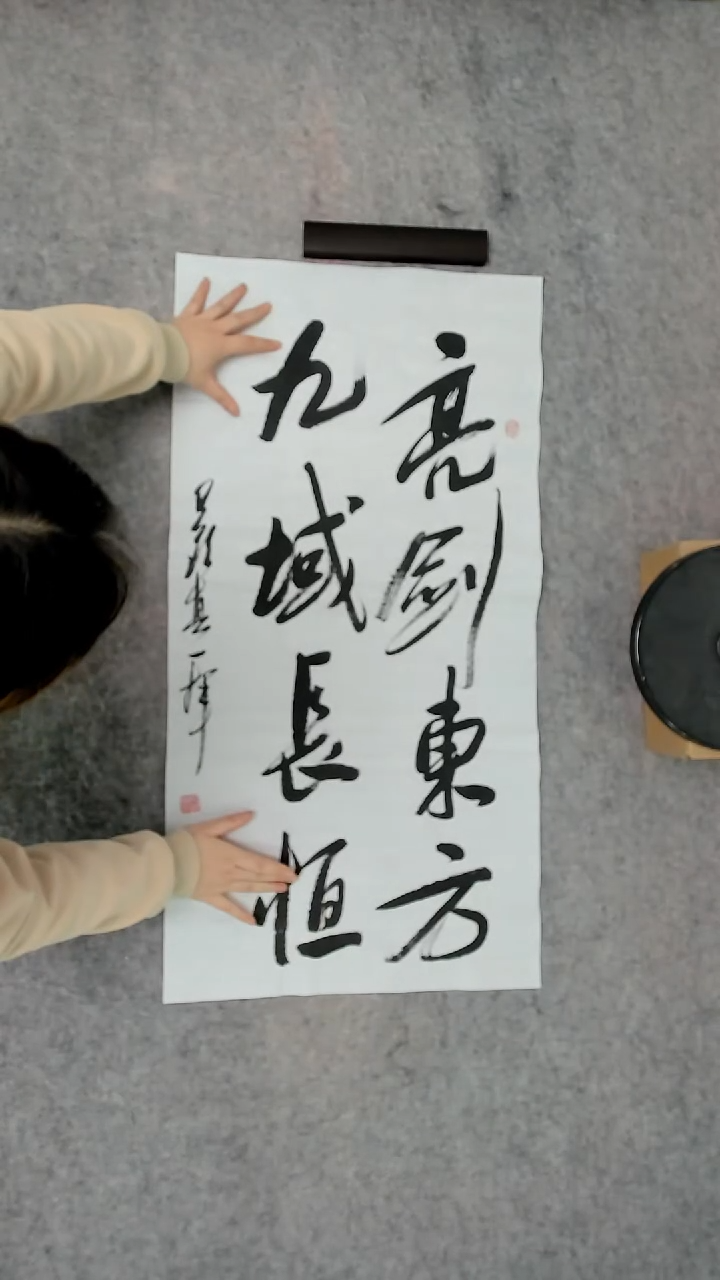 亮劍東方
九域長恒